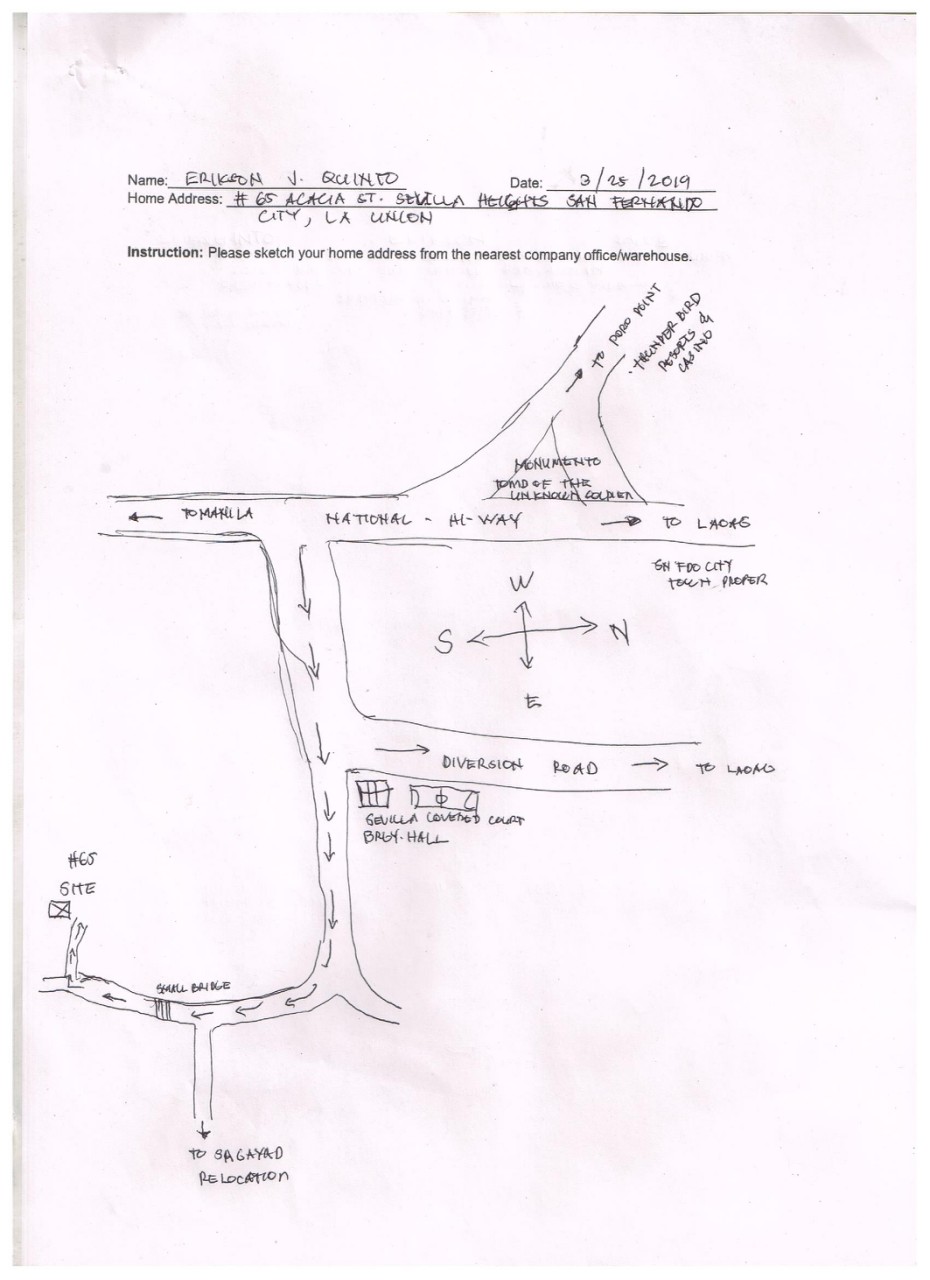 Name: ERIKSON V. QUINTO Date: 3/25/2019
Home Address: # 65 ACACIA ST. SEVILLA HEIGHTS SAN FERNANDO
CITY, LA UNION
Instruction: Please sketch your home address from the nearest company office/warehouse.
TO PORO POINT
THUNDER BIRD
RESORTS &
CASINO
MONUMENTO
TOMB OF THE
UNKNOWN SOLDIER
TO MANILA
NATIONAL - HI-WAY
TO LAOAG
SN FDO CITY
TOWN PROPER
W
S
N
E
DIVERSION ROAD
TO LAOAG
SEVILLA COVERED COURT
BRGY. HALL
#65
SITE
SMALL BRIDGE
TO SAGAYAD
RELOCATION